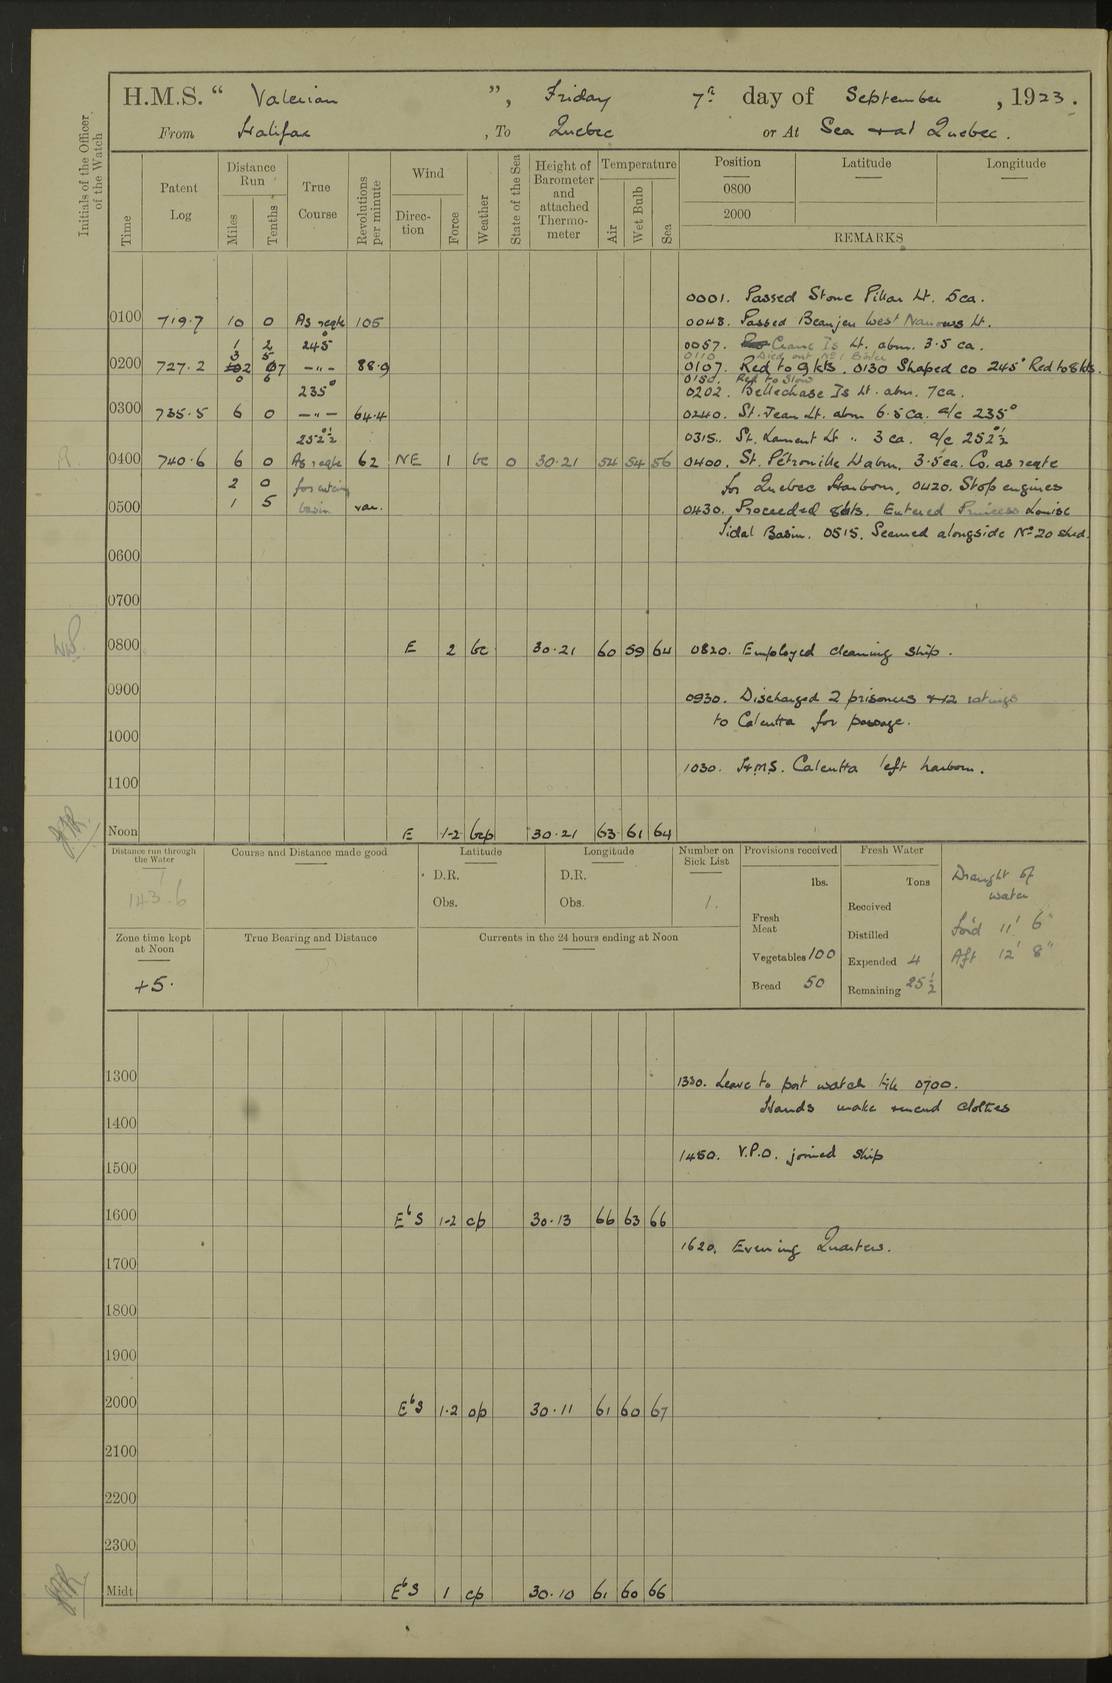 H.M.S. “ Valerian ”, Friday 7th day of September , 1923.
From Halifax , To Quebec or At Sea & at Quebec.
Initials of the Officer of the Watch
Time
Patent Log
Distance Run
Miles
Tenths
True Course
Revolutions per minute
Wind
Direc-tion
Force
Weather
State of the Sea
Height of Barometer and attached Thermo-meter
Temperature
Air
Wet Bulb
Sea
Position
Latitude
Longitude
0800
2000
REMARKS
0001. Passed Stone Pillar Lt. 5ca.
0100 719.7 10 0 As reqte 105
0048. Passed Beaujeu West Narrows Lt.
1 2 245°
0057. Crane Is Lt. abm. 3.5 ca.
3 5
0110 Died out No 1 Boiler
0200 727.2 2 7 -"- 88.9
0107. Red to 9kts. 0130 Shaped co 245° Red to 8kts.
0 6
0150. Red to Slow
235°
0202. Bellechase Is Lt. abm. 7ca.
0300 735.5 6 0 -"- 64.4
0240. St. Jean Lt. abm 6.5ca. a/c 235°
252°½
0315. St. Laurent Lt " 3 ca. a/c 252°½
0400 740.6 6 0 As reqte 62 NE 1 bc 0 30.21 54 54 56
0400. St. Pétronille Lt abm. 3.5ca. Co. as reqte
2 0 for entering
for Quebec Harbour, 0420. Stop engines
0500 1 5 basin var.
0430. Proceeded 8kts. Entered Princess Louise
Tidal Basin. 0515. Secured alongside No 20 shed.
0600
0700
0800 E 2 bc 30.21 60 59 64
0820. Employed cleaning ship.
0900
0930. Discharged 2 prisoners & 12 ratings
to Calcutta for passage.
1000
1030. H.M.S. Calcutta left harbour.
1100
Noon E 1-2 bcp 30.21 63 61 64
Distance run through the Water
143.6
Course and Distance made good
Latitude
D.R.
Obs.
Longitude
D.R.
Obs.
Number on Sick List
1.
Provisions received
lbs.
Fresh Meat
Vegetables 100
Bread 50
Fresh Water
Tons
Received
Distilled
Expended 4
Remaining 25½
Draught of
water
For'd 11' 6"
Aft 12' 8"
Zone time kept at Noon
+5.
True Bearing and Distance
Currents in the 24 hours ending at Noon
1300
1330. Leave to port watch till 0700.
Hands make & mend clothes
1400
1450. V.P.O. joined ship
1500
1600 E b S 1-2 cp 30.13 66 63 66
1620. Evening Quarters.
1700
1800
1900
2000 E b S 1-2 op 30.11 61 60 67
2100
2200
2300
Midt E b S 1 cp 30.10 61 60 66